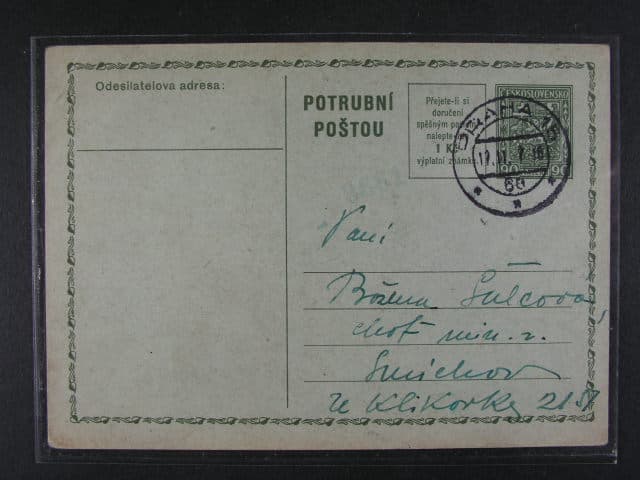 Odesilatelova adresa:
POTRUBNÍ
POŠTOU
Přejete-li si
doručení
spěšným
nalepte
1 Kč
výplatní známk
ČESKOSLOVENSKO
90 90
PRAHA
60
Paní
Božena Šulcová,
choť min. r.
Smíchov
U Klikovky